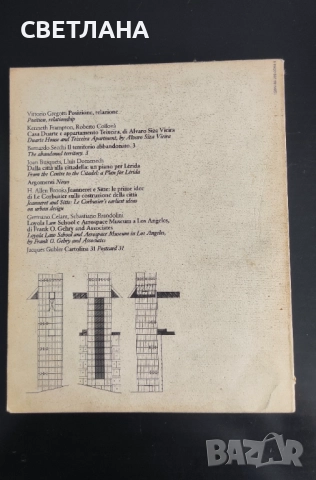 СВЕТЛАНА
Vittorio Gregotti Posizione, relazione
Position, relationship
Kenneth Frampton, Roberto Collovà
Casa Duarte e appartamento Teixeira, di Alvaro Siza Vieira
Duarte House and Teixeira Apartment, by Alvaro Siza Vieira
Bernardo Secchi Il territorio abbandonato, 3
The abandoned territory, 3
Joan Busquets, Lluis Domenech
Dalla città alla cittadella: un piano per Lérida
From the Centre to the Citadel: a Plan for Lérida
Argomenti News
H. Allen Brooks Jeanneret e Sitte: le prime idee
di Le Corbusier sulla costruzione della città
Jeanneret and Sitte: Le Corbusier's earliest ideas
on urban design
Germano Celant, Sebastiano Brandolini
Loyola Law School e Aerospace Museum a Los Angeles,
di Frank O. Gehry and Associates
Loyola Law School and Aerospace Museum in Los Angeles,
by Frank O. Gehry and Associates
Jacques Gubler Cartolina 31 Postcard 31
BAZAR
bg